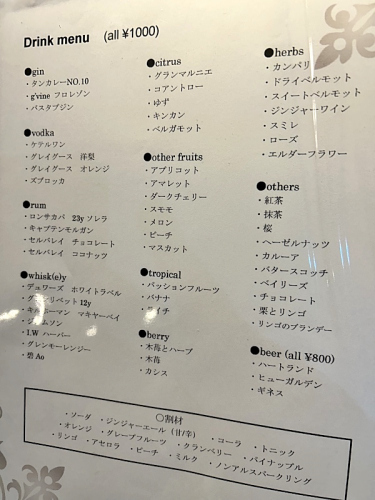 Drink menu (all ¥1000)
●gin
・タンカレーNO.10
・g'vine フロレゾン
・パスタブジン
●vodka
・ケテルワン
・グレイグース 洋梨
・グレイグース オレンジ
・ズブロッカ
●rum
・ロンサカパ 23y ソレラ
・キャプテンモルガン
・セルバレイ チョコレート
・セルバレイ ココナッツ
●whisk(e)y
・デュワーズ ホワイトラベル
・グレンリベット12y
・キルホーマン マキヤーベイ
・ジェムソン
・I.W ハーパー
・グレンモーレンジー
・碧 Ao
●citrus
・グランマルニエ
・コアントロー
・ゆず
・キンカン
・ベルガモット
●other fruits
・アプリコット
・アマレット
・ダークチェリー
・スモモ
・メロン
・ピーチ
・マスカット
●tropical
・パッションフルーツ
・バナナ
・ライチ
●berry
・木苺とハーブ
・木苺
・カシス
●herbs
・カンパリ
・ドライベルモット
・スイートベルモット
・ジンジャーワイン
・スミレ
・ローズ
・エルダーフラワー
●others
・紅茶
・抹茶
・桜
・ヘーゼルナッツ
・カルーア
・バタースコッチ
・ベイリーズ
・チョコレート
・栗とリンゴ
・リンゴのブランデー
●beer (all ¥800)
・ハートランド
・ヒューガルデン
・ギネス
〇割材
・ソーダ ・ジンジャーエール（甘/辛） ・コーラ ・トニック
・オレンジ ・グレープフルーツ ・クランベリー ・パイナップル
・リンゴ ・アセロラ ・ピーチ ・ミルク ・ノンアルスパークリング